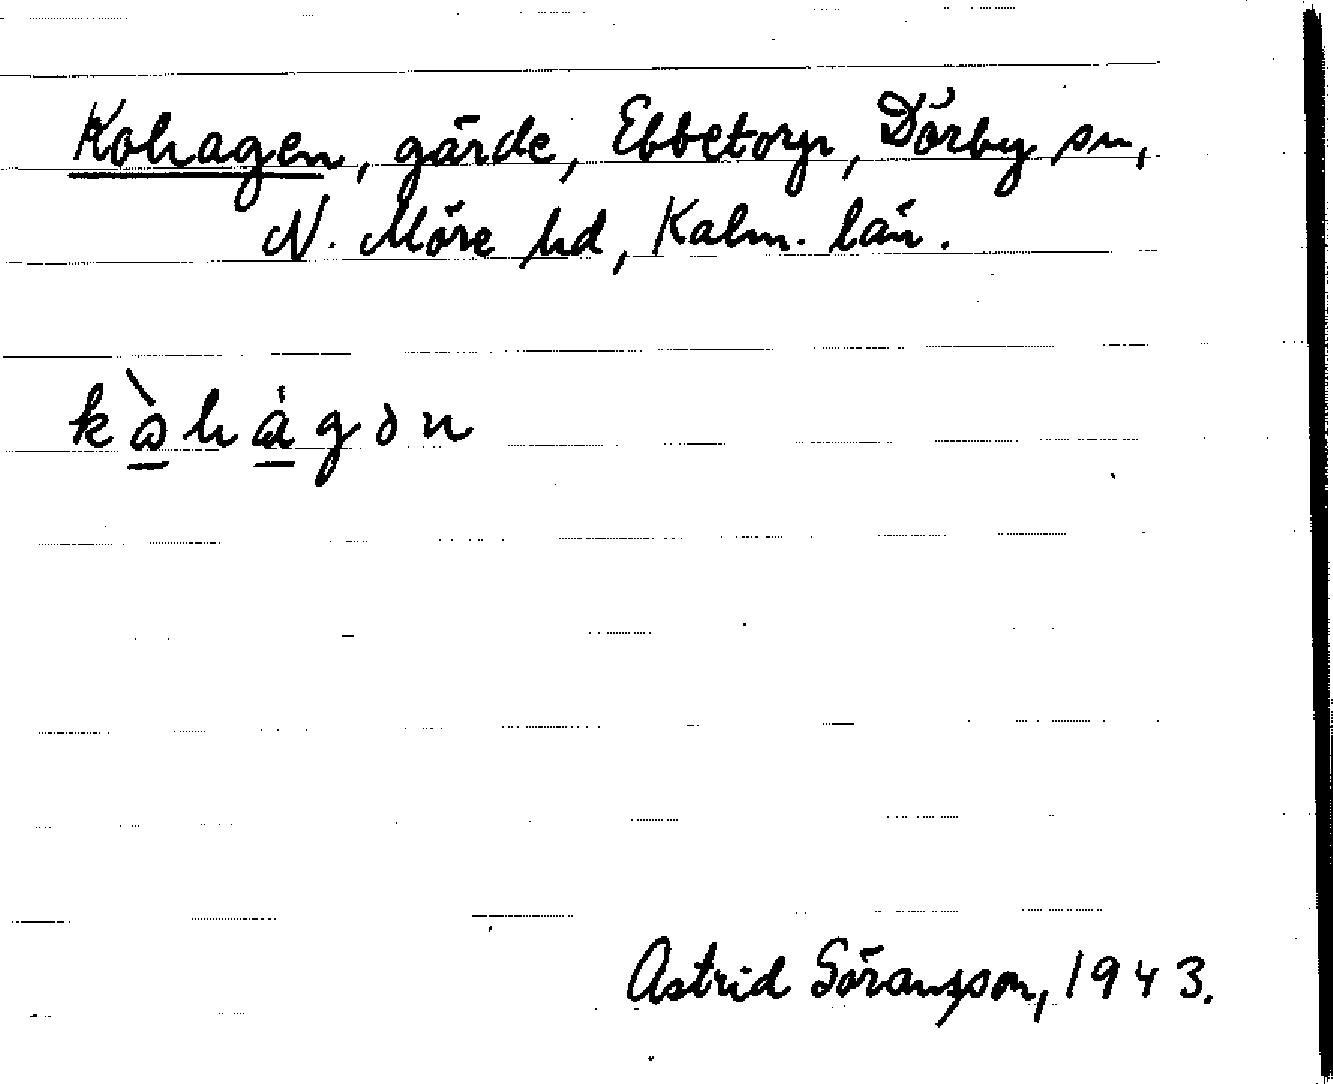 Kohagen, gärde, Ebbetorp, Dörby sn,
N. Möre hd, Kalm. län.
kòhágən
Astrid Göransson, 1943.